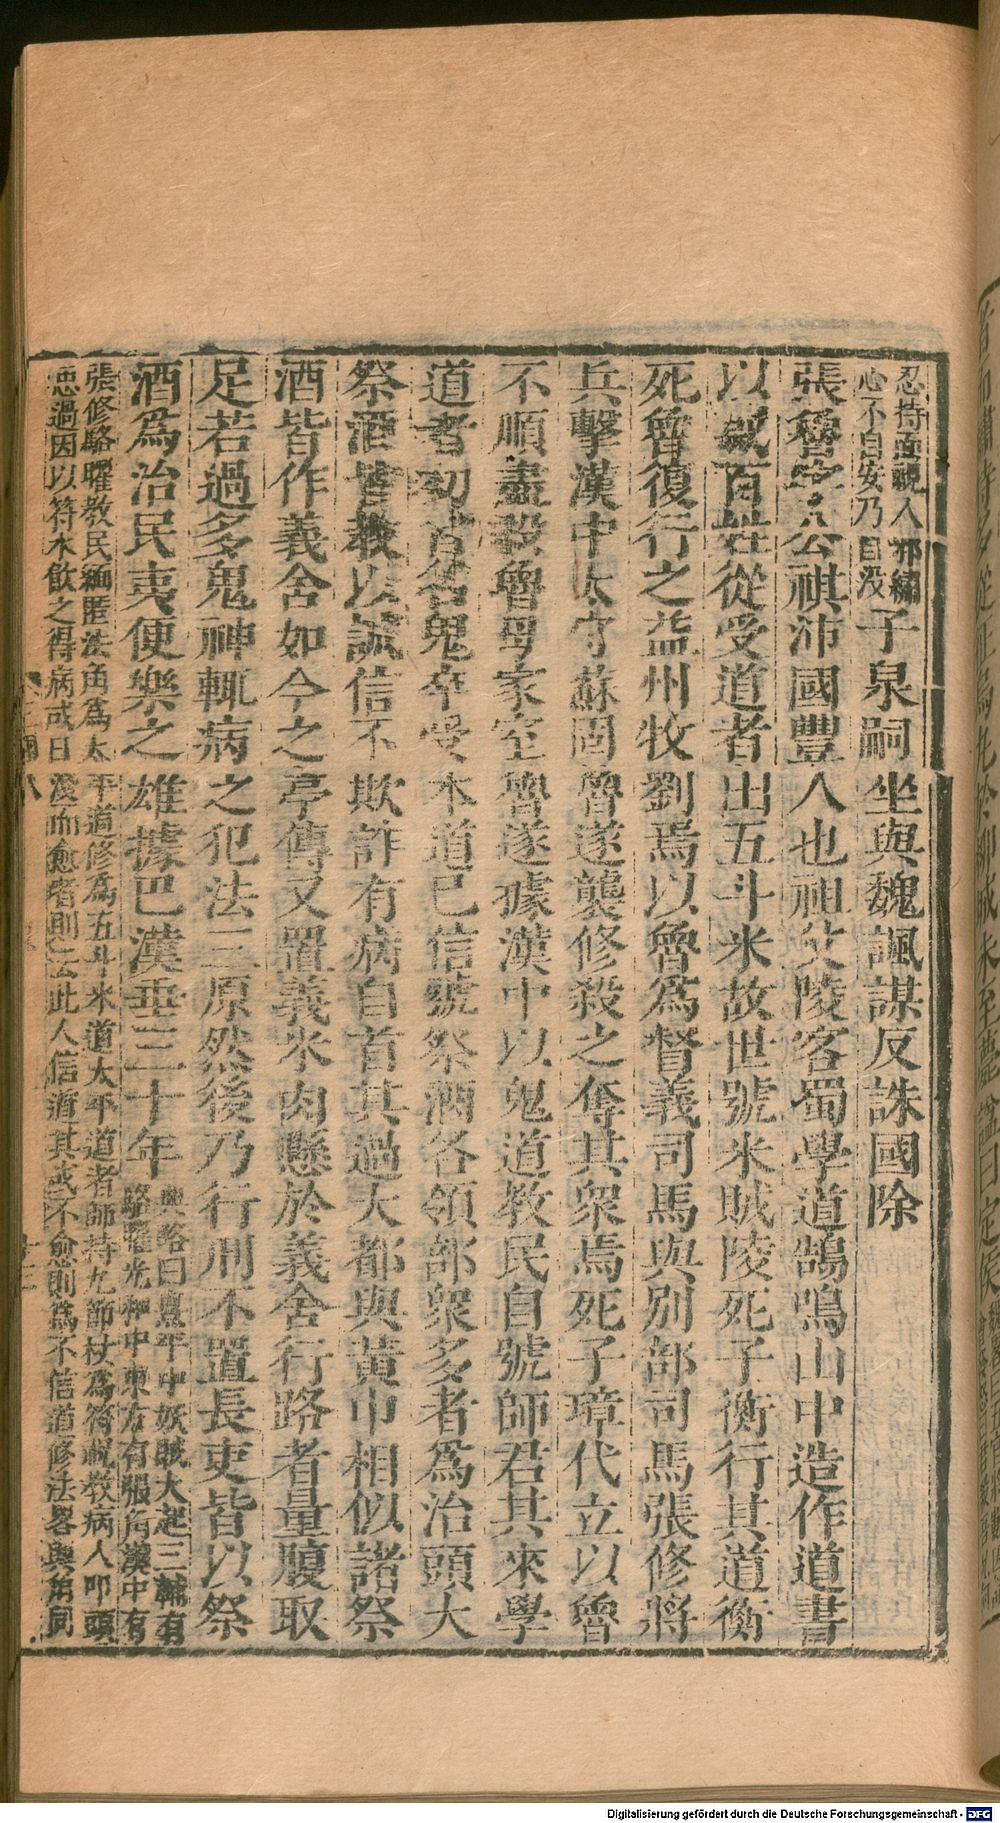 忍持面視人邪繡
心不自安乃自没
子泉嗣坐與魏諷謀反誅國除
張魯字公祺沛國豐人也祖父陵客蜀學道鵠鳴山中造作道書
以惑百姓從受道者出五斗米故世號米賊陵死子衡行其道衡
死魯復行之益州牧劉焉以魯爲督義司馬與別部司馬張修將
兵擊漢中太守蘇固魯遂襲修殺之奪其衆焉死子璋代立以魯
不順盡殺魯母家室魯遂據漢中以鬼道教民自號師君其來學
道者初皆名鬼卒受本道已信號祭酒各領部衆多者爲治頭大
祭酒皆教以誠信不欺詐有病自首其過大都與黃巾相似諸祭
酒皆作義舍如今之亭傳又置義米肉懸於義舍行路者量腹取
足若過多鬼神輒病之犯法三原然後乃行刑不置長吏皆以祭
酒爲治民夷便樂之雄據巴漢垂三十年
典略曰熹平中妖賊大起三輔有
駱曜光和中東方有張角漢中有
張修駱曜教民緬匿法角爲太平道修爲五斗米道太平道者師持九節杖爲符祝教病人叩頭
思過因以符水飲之得病或日淺而愈者則云此人信道其或不愈則爲不信道修法畧與角同
Digitalisierung gefördert durch die Deutsche Forschungsgemeinschaft - DFG